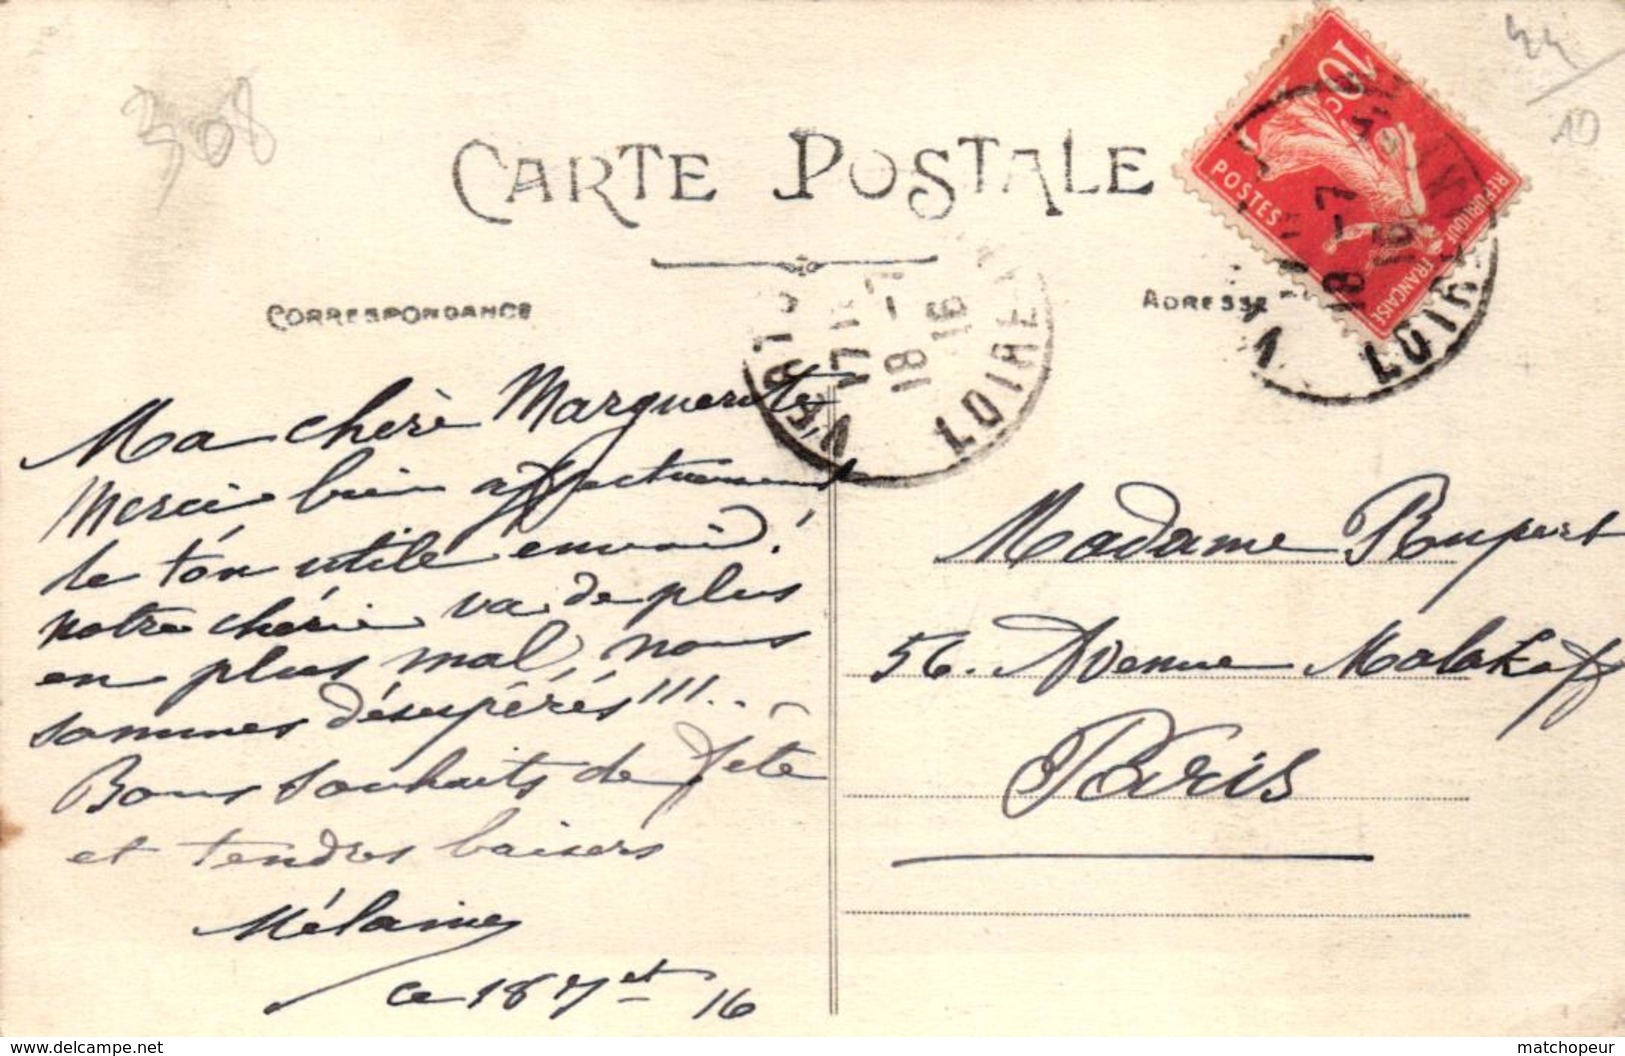 308
44
10
CARTE POSTALE
10c
POSTES
REPUBLIQUE FRANÇAISE
CORRESPONDANCE
ADRESSE
18-7
16
LOIRE
17
18-7
16
LOIRE
Ma chère Marguerite
Merci bien affectueusement
de ton utile envoi!
notre chérie va de plus
en plus mal, nous
sommes désespérés!!!..
Bons souhaits de fête
et tendres baisers
Mélanie
ce 18 7et 16
Madame Rupert
56. Avenue Malakoff
Paris
delcampe.net
matchopeur